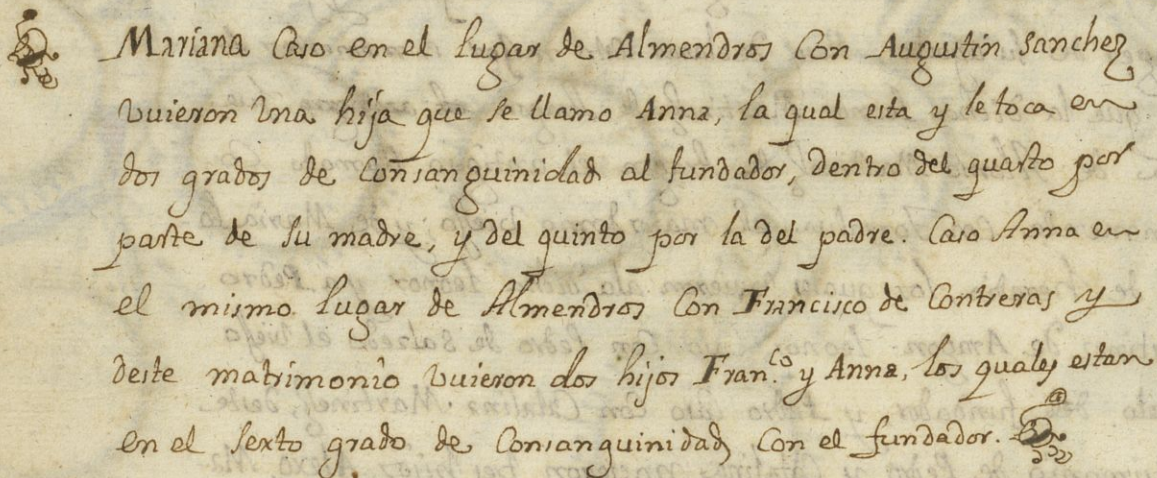 Mariana Caso en el lugar de Almendros Con Augustin Sanchez
vuieron vna hija que se llamo Anna, la qual esta y le toca en
dos grados de Consanguinidad al fundador, dentro del quarto por
parte de su madre, y del quinto por la del padre. Caso Anna en
el mismo lugar de Almendros Con Francisco de Contreras y
deste matrimonio vuieron dos hijos Fran.co y Anna, los quales estan
en el sexto grado de Consanguinidad Con el fundador.